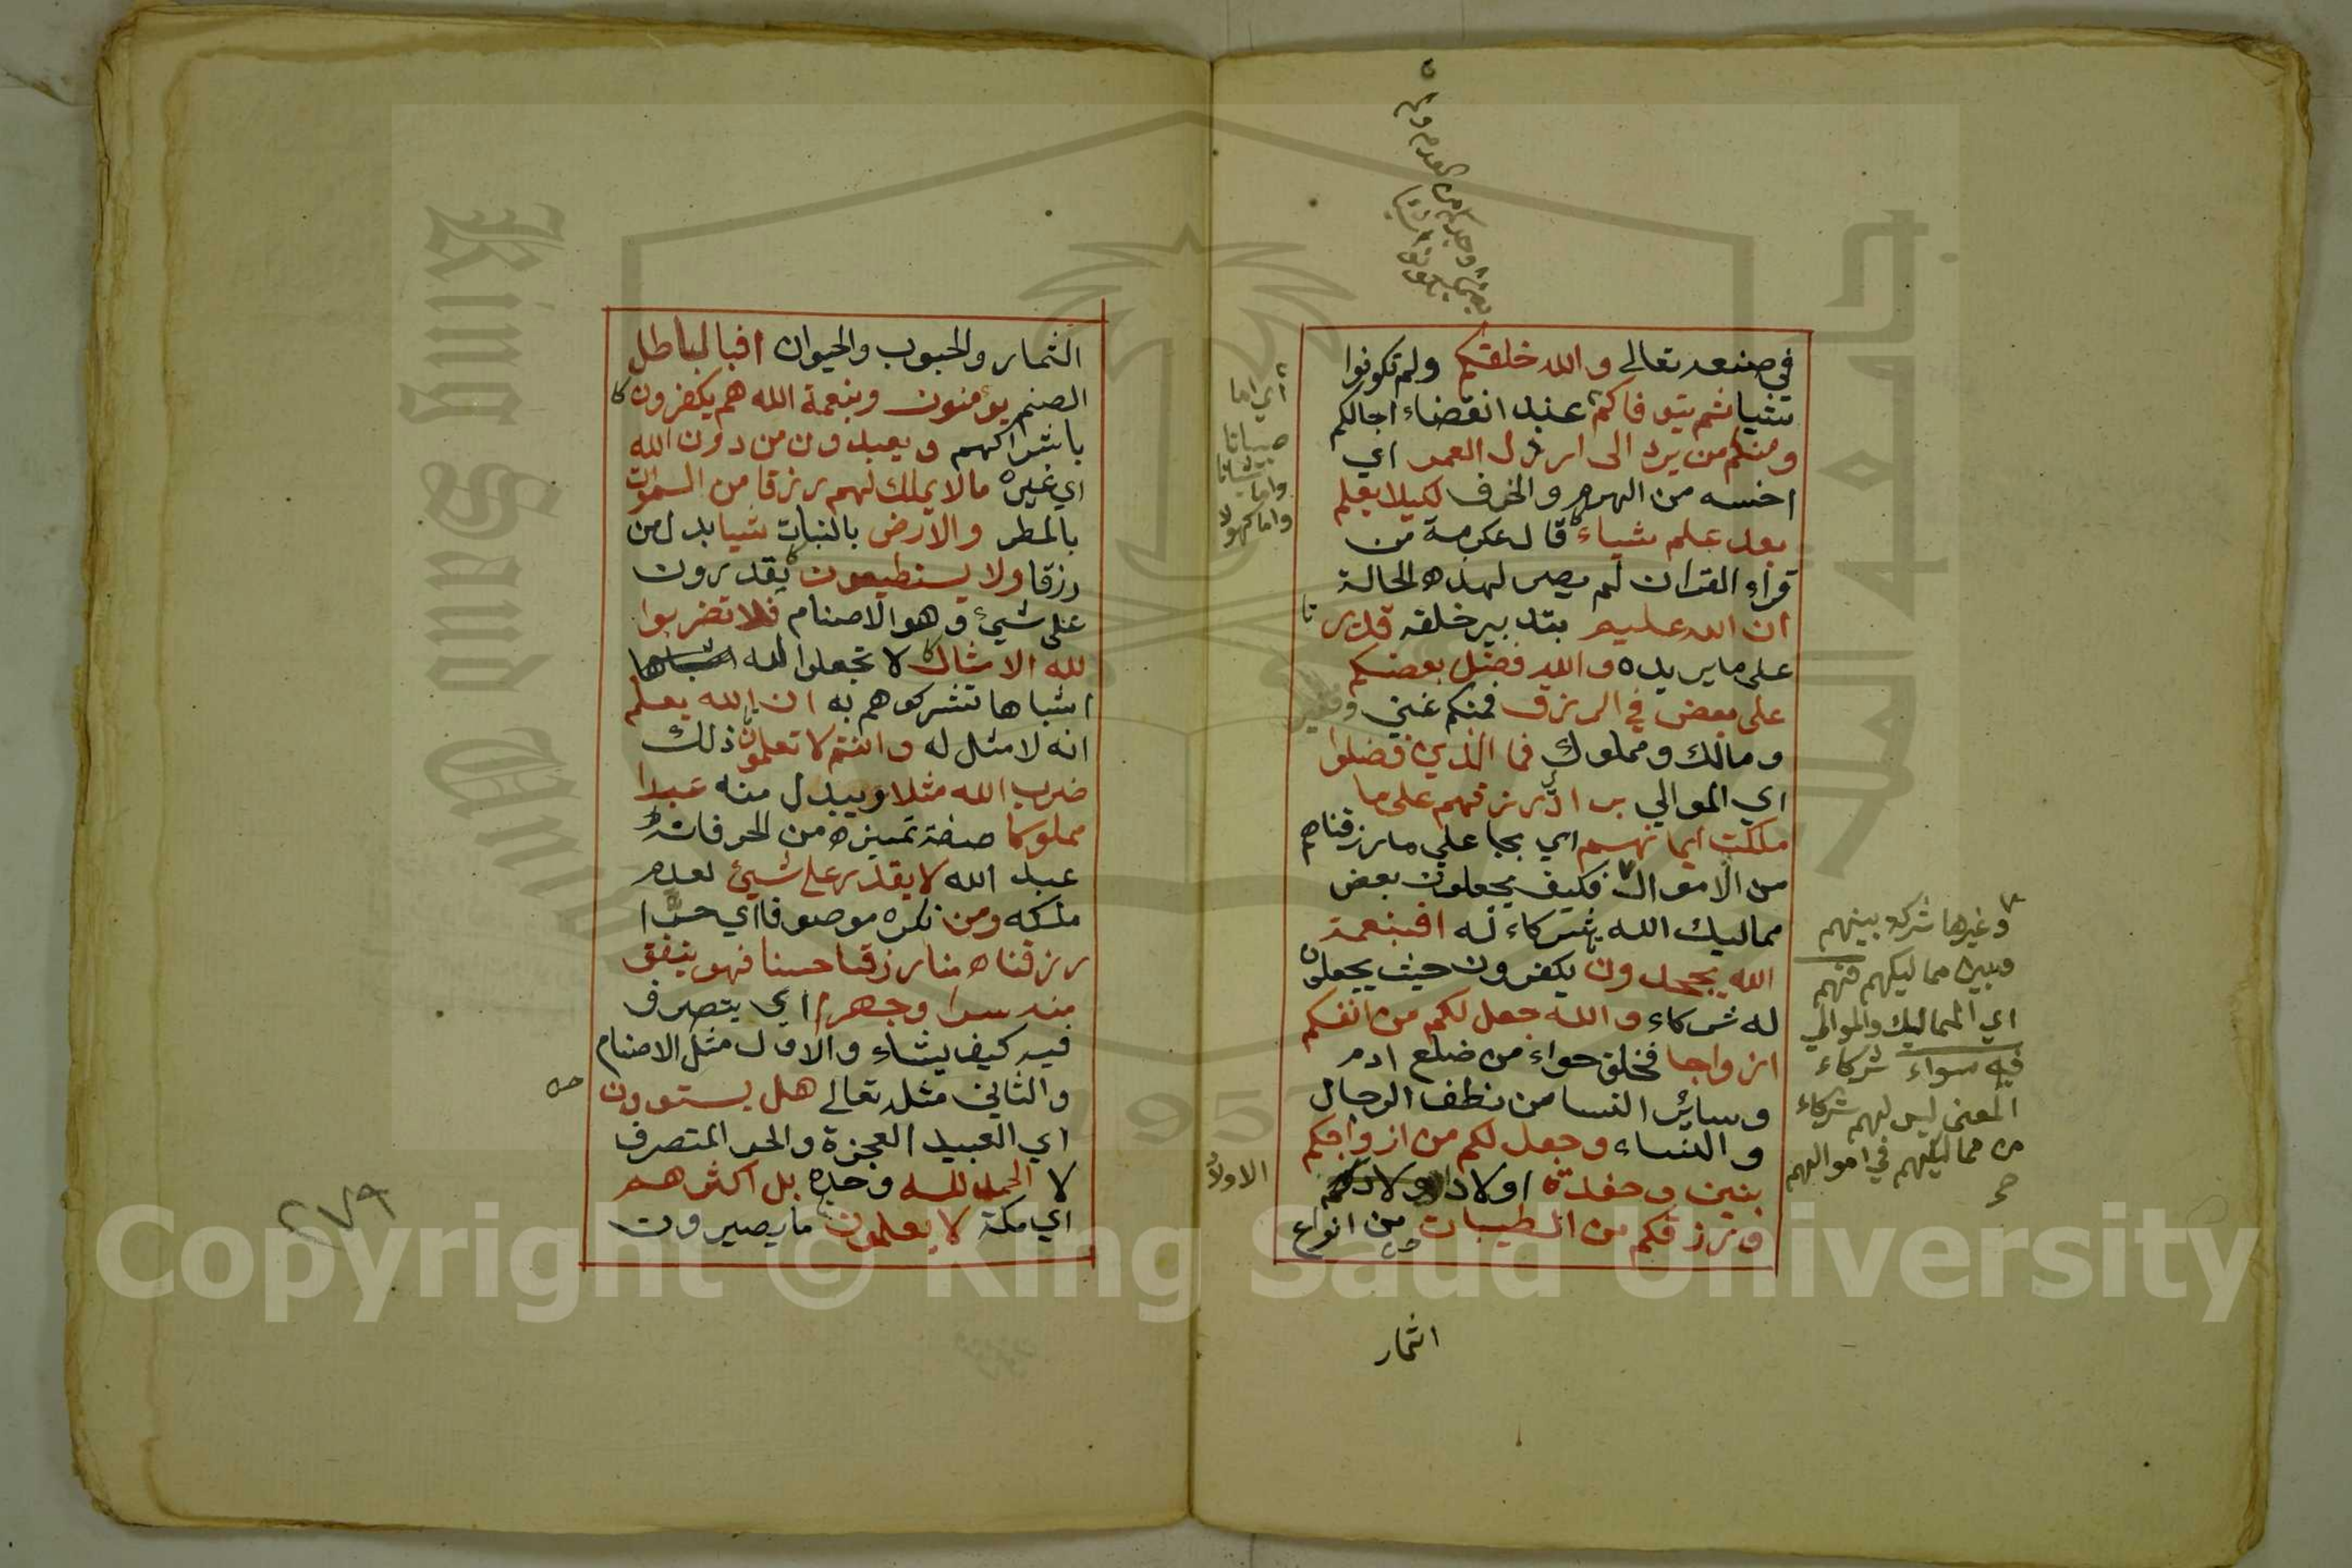 في صنعه تعالى والله خلقكم ولم تكونوا
شيا ثم يتوفاكم عند انقضاء اجالكم
ومنكم من يرد الى ارذل العمر اي
اخسه من الهرم والخرف لكيلا يعلم
بعد علم شياء قال عكرمة من
قراء القران لم يصر لهذه الحالة
ان الله عليم بتدبير خلقه قدير
على ما يريده والله فضل بعضكم
على بعض في الرزق فمنكم غني وفقير
ومالك ومملوك فما الذين فضلوا
اي الموالي برادي رزقهم على ما
ملكت ايمانهم اي بجاعلي ما رزقناهم
من الاموال فكيف يجعلون بعض
مماليك الله شركاء له افبنعمة
الله يجحدون يكفرون حيث يجعلون
له شركاء والله جعل لكم من انفسكم
ازواجا فخلق حواء من ضلع ادم
وسائر النسا من نطف الرجال
والنساء وجعل لكم من ازواجكم
بنين وحفدة اولاد الاولاد
ورزقكم من الطيبات من انواع
اثمار
اي اما
صبيانا
واما شبانا
واما كهولا
الاولاد
وغيرها شركة بينهم
وبين مماليكهم فهم
اي المماليك والموالي
فيه سواء شركاء
المعنى ليس لهم شركاء
من مماليكهم في اموالهم
صح
الثمار والحبوب والحيوان افبالباطل
الصنم يؤمنون وبنعمة الله هم يكفرون
باشراكهم ويعبدون من دون الله
اي غيره ما لا يملك لهم رزقا من السموات
بالمطر والارض بالنبات شيا بدل من
رزقا ولا يستطيعون يقدرون
على شيئ وهو الاصنام فلا تضربوا
لله الامثال لا تجعلوا لله اشباها
اشباها تشركوهم به ان الله يعلم
انه لا مثل له وانتم لا تعلمون ذلك
ضرب الله مثلا ويبدل منه عبدا
مملوكا صفة تميزه من الحر فانه
عبد الله لا يقدر على شيئ لعدم
ملكه ومن نكره موصوفا اي حرا
رزقناه منا رزقا حسنا فهو ينفق
منه سرا وجهرا اي يتصرف
فيه كيف يشاء والاول مثل الاصنام
والثاني مثله تعالى هل يستوون
اي العبيد العجزة والحر المتصرف
لا الحمد لله وحده بل اكثرهم
اي مكة لا يعلمون ما يصيرون
٢٧٩
King Saud University
1957
Copyright © King Saud University